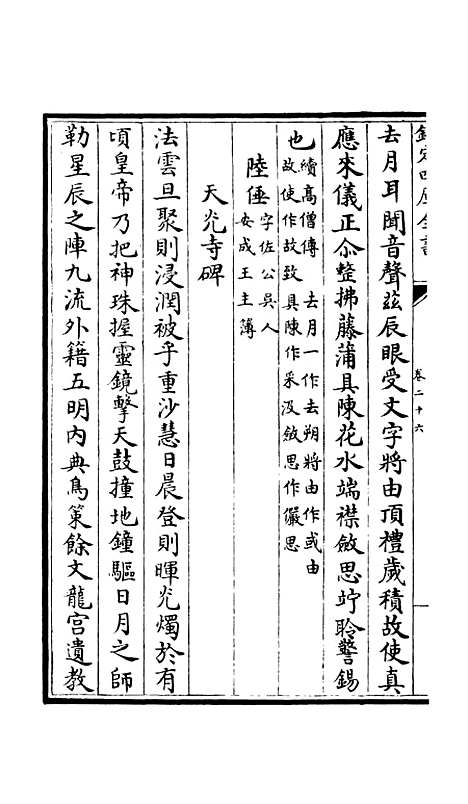 欽定四庫全書
卷二十六
去月耳聞音聲兹辰眼受文字將由頂禮歲積故使真
應來儀正尒整拂藤蒲具陳花水端襟斂思竚聆警錫
也續高僧傳 去月一作去朔將由作或由
故使作故致 具陳作采汲斂思作儼思
陸倕字佐公吳人
安成王主簿
天光寺碑
法雲旦聚則浸潤被乎重沙慧日晨登則暉光燭於有
頃皇帝乃把神珠握靈鏡擊天鼓撞地鐘驅日月之師
勒星辰之陣九流外籍五明内典鳥策餘文龍宫遺教